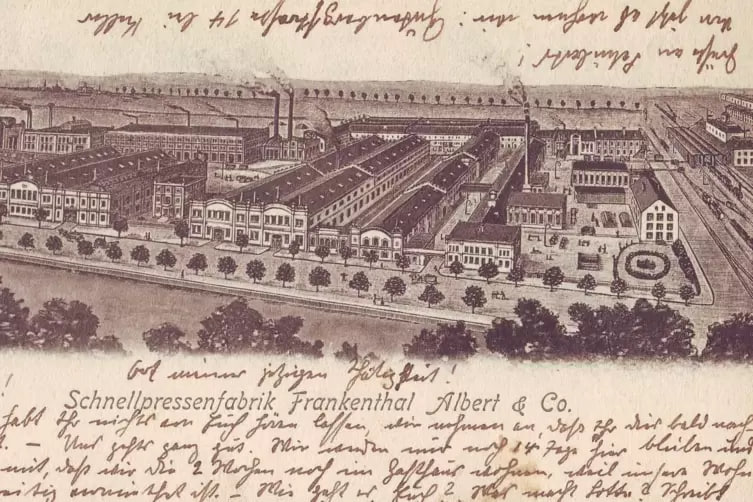 Ort meiner jetzigen Tätigkeit!
Schnellpressenfabrik Frankenthal Albert & Co.
habt Ihr nichts von Euch hören lassen, wir nehmen an, daß Ihr dies bald nach
– Uns gehts ganz gut. Wir werden nur noch 14 Tage hier bleiben und
mit, daß wir die 2 Wochen noch im Gasthaus wohnen, weil unsere Wohn
vermietet ist. – Wie geht es Euch? Was macht Lotte? Schreibt
Gutenbergstraße 14 bei Keller
jetzt wohnen wir:
Grüße an